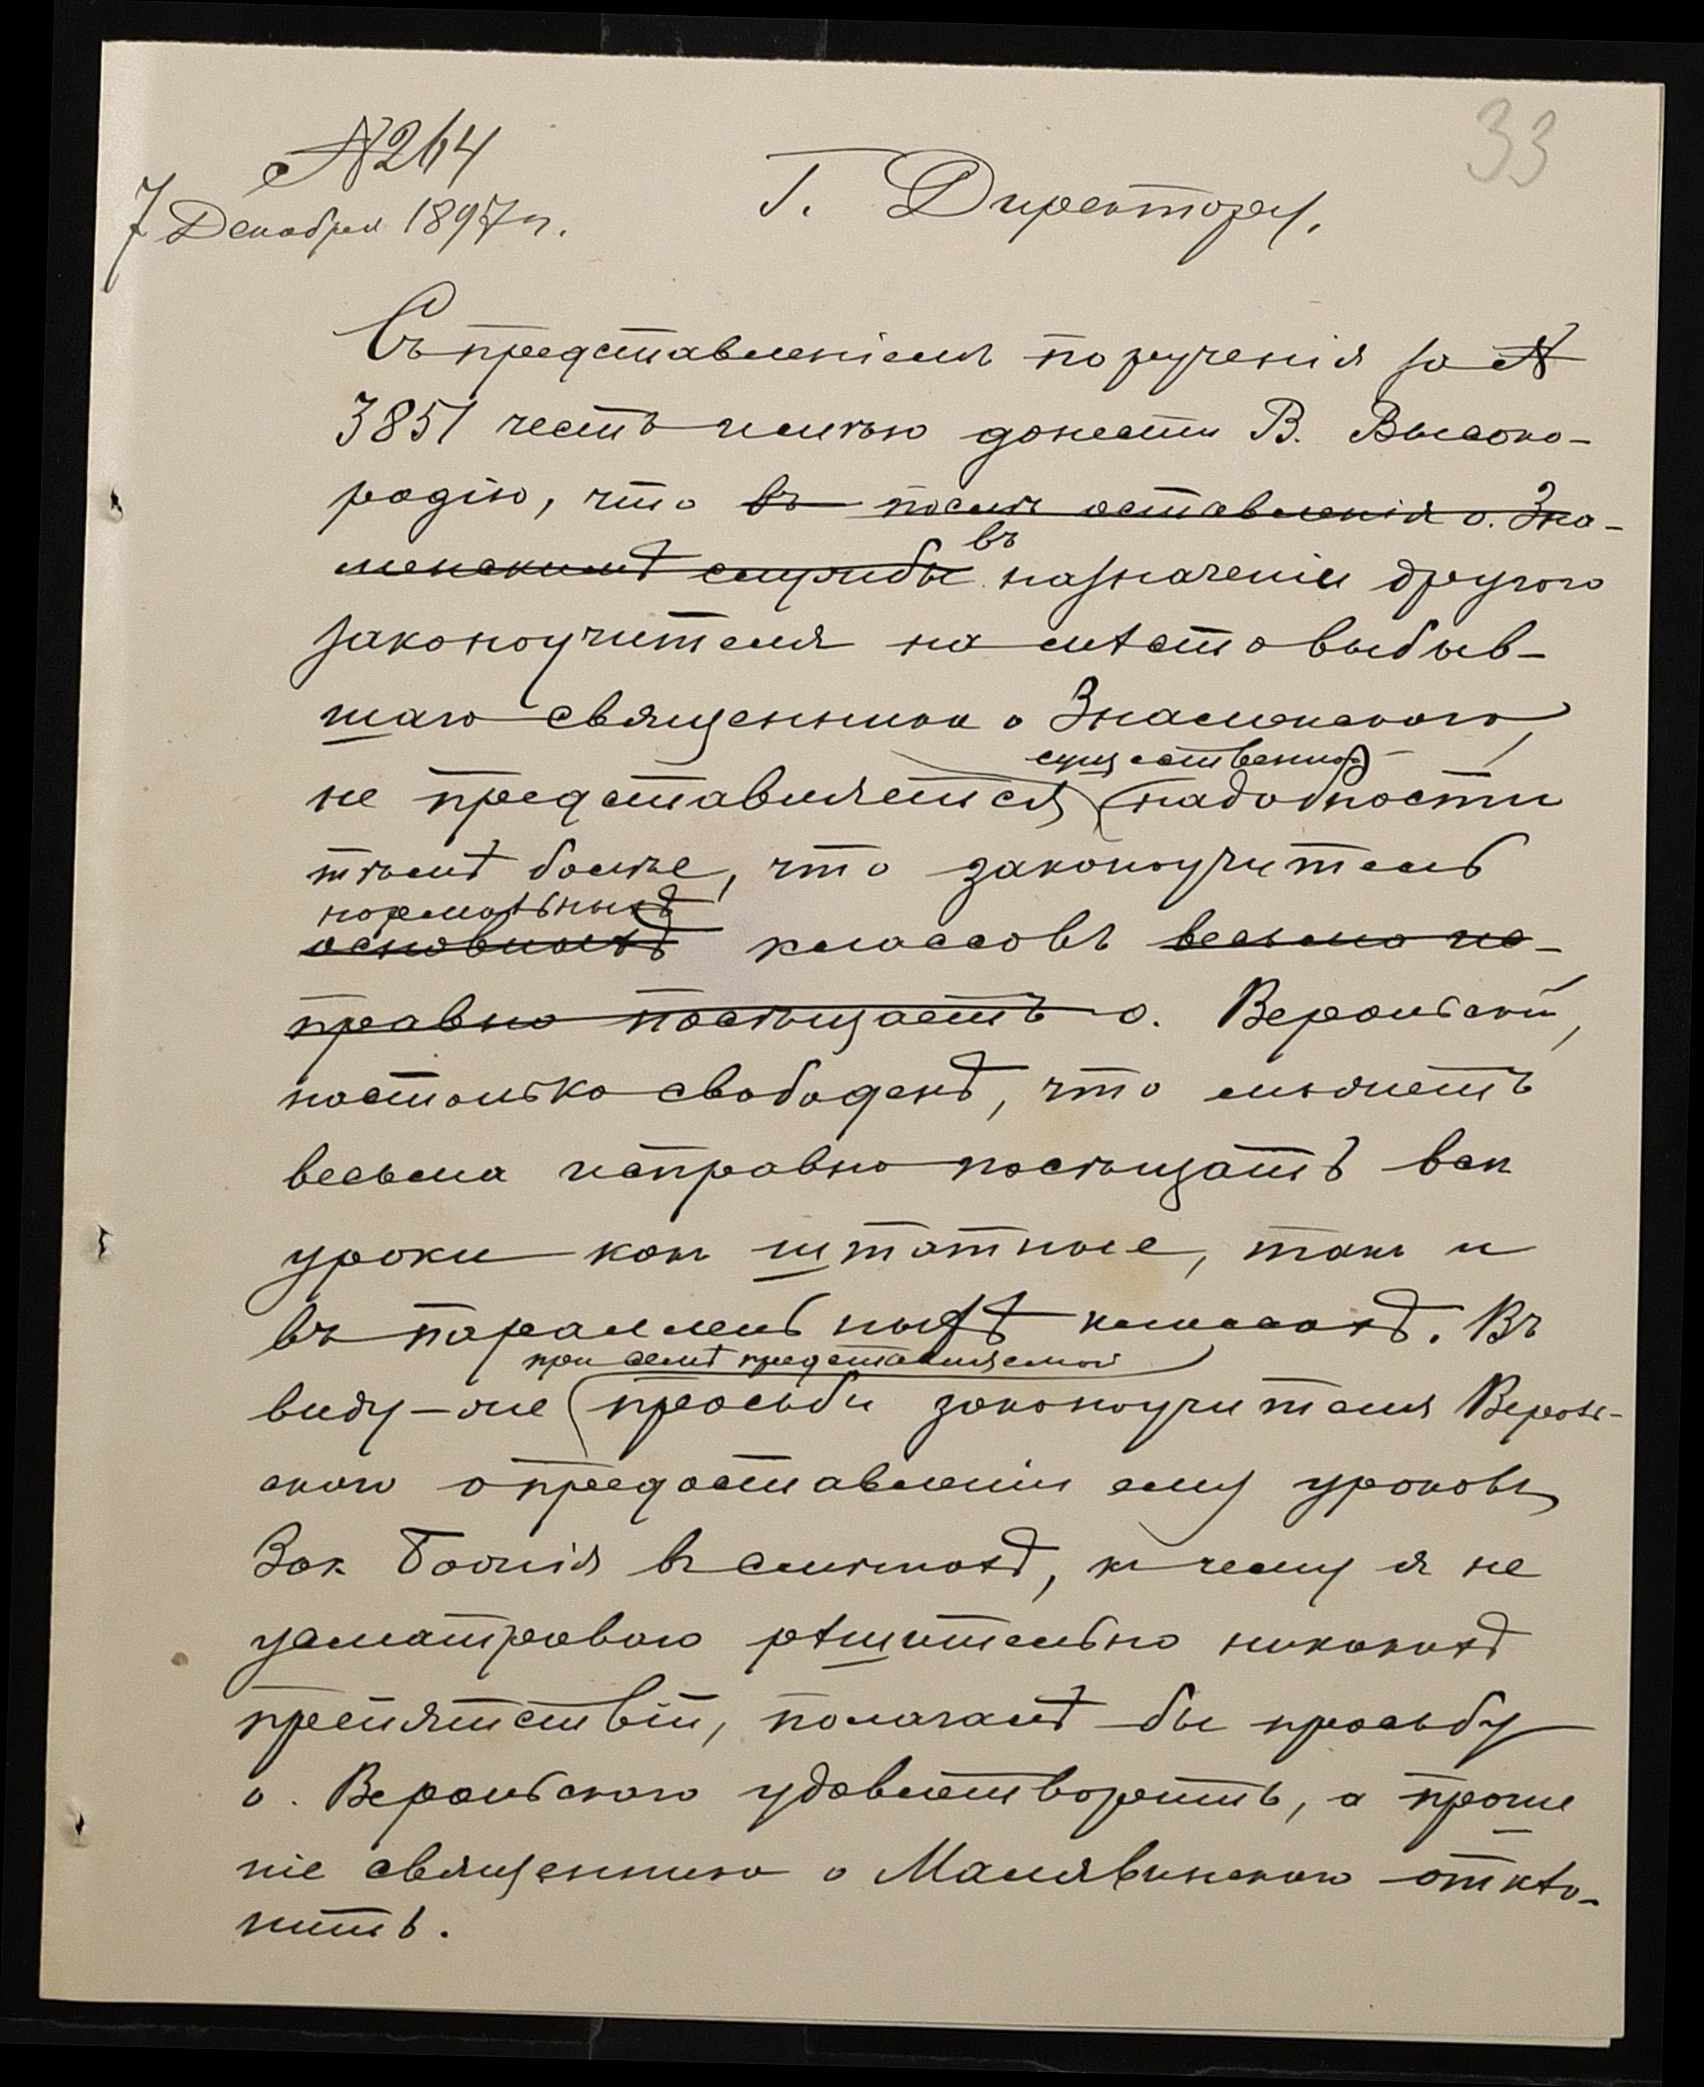 33
№ 264
7 Декабря 1897 г.
Г. Директору.
Съ представленіемъ порученія за №
3851 честь имѣю донести В. Высоко-
родію, что въ послѣ оставленія о. Зна-
менскимъ службы въ назначеніи другого
законоучителя на мѣсто выбыв-
шаго священника о Знаменскаго,
существенной
не представляется надобности
тѣмъ болѣе, что законоучитель
нормальныхъ
основныхъ классовъ весьма ис-
правно посѣщаетъ о. Верольскій,
настолько свободенъ, что можетъ
весьма исправно посѣщать всѣ
уроки какъ штатные, такъ и
въ параллельныхъ классахъ. Въ
при семъ представляемой
виду-же просьбы законоучителя Вероль-
скаго о предоставленіи ему уроковъ
Зак. Божія въ смѣнахъ, къ чему я не
усматриваю рѣшительно никакихъ
препятствій, полагалъ бы просьбу
о. Верольскаго удовлетворить, а проше
ніе священника о Малявинскаго откло-
нить.